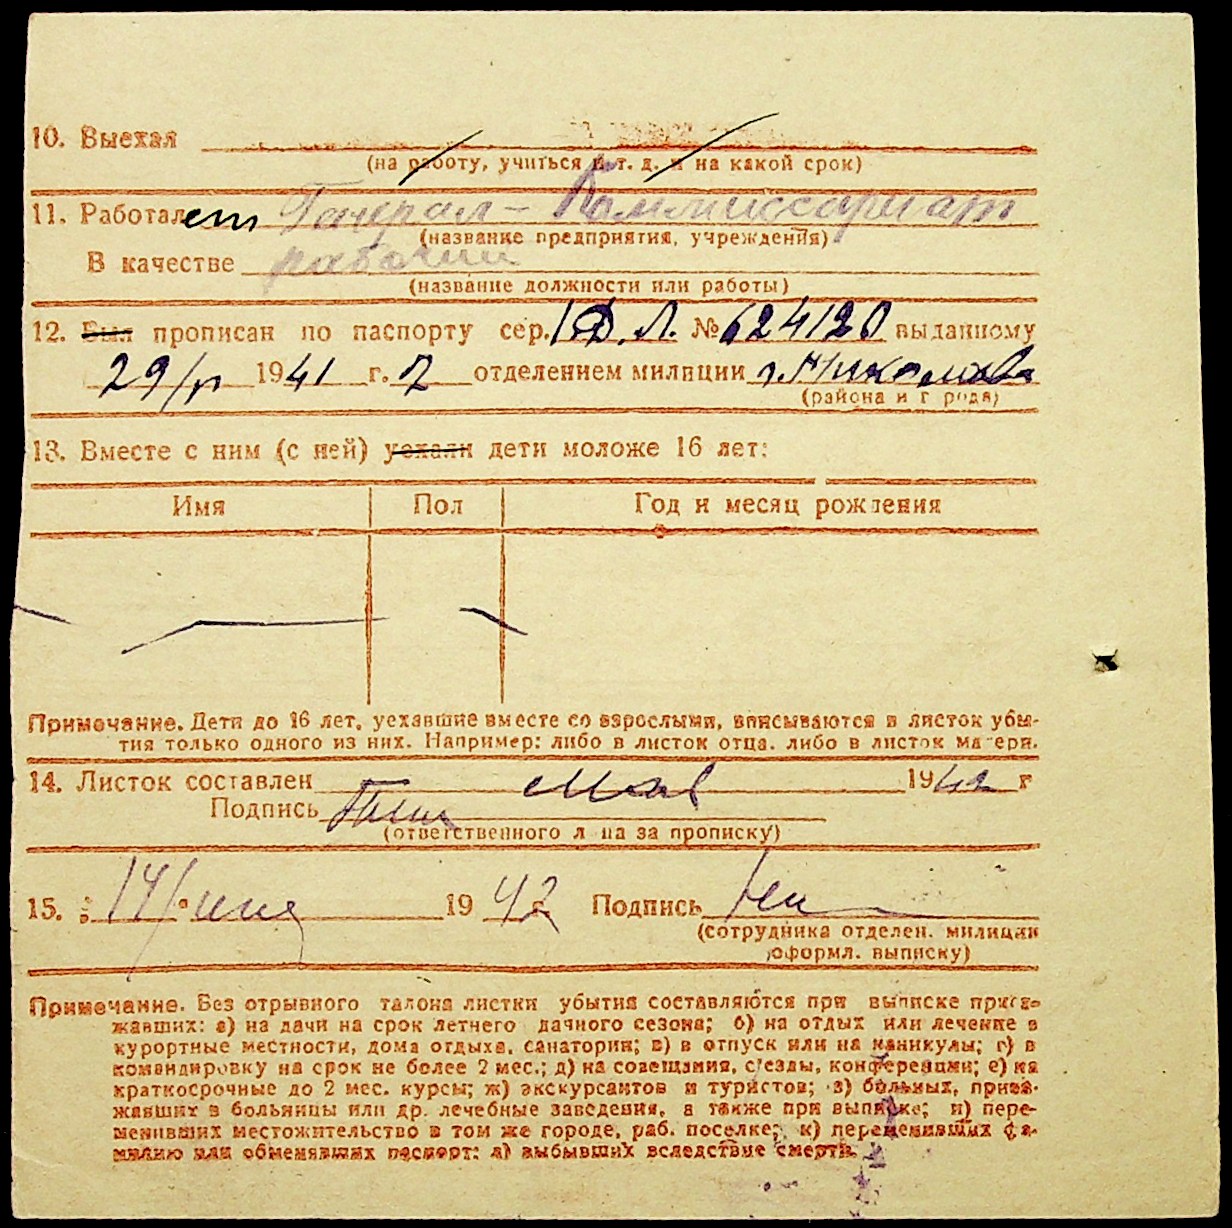 10. Выехал
(на работу, учиться и т. д. и на какой срок)
11. Работает Генерал-Коммиссариат
(название предприятия, учреждения)
В качестве рабочий
(название должности или работы)
12. Был прописан по паспорту сер. № 624120 выданному
29/ 1941 г. 7 отделением милиции г. Николаев
(района и г рода)
13. Вместе с ним (с ней) уехали дети моложе 16 лет:
Имя Пол Год и месяц рождения
Примечание. Дети до 16 лет, уехавшие вместе со взрослыми, вписываются в листок убы-
тия только одного из них. Например: либо в листок отца, либо в листок матери.
14. Листок составлен мая 1942 г
Подпись
(ответственного л ца за прописку)
15. 14/ 1942 Подпись
(сотрудника отделен. милиции
оформл. выписку)
Примечание. Без отрывного талона листки убытия составляются при выписке приез-
жавших: а) на дачи на срок летнего дачного сезона; б) на отдых или лечение в
курортные местности, дома отдыха, санатории; в) в отпуск или на каникулы; г) в
командировку на срок не более 2 мес.; д) на совещания, с'езды, конференции; е) на
краткосрочные до 2 мес. курсы; ж) экскурсантов и туристов; з) больных, приез-
жавших в больницы или др. лечебные заведения, а также при выписке; и) пере-
менивших местожительство в том же городе, раб. поселке; к) переменивших фа-
милию или обменявших паспорт; л) выбывших вследствие смерти.